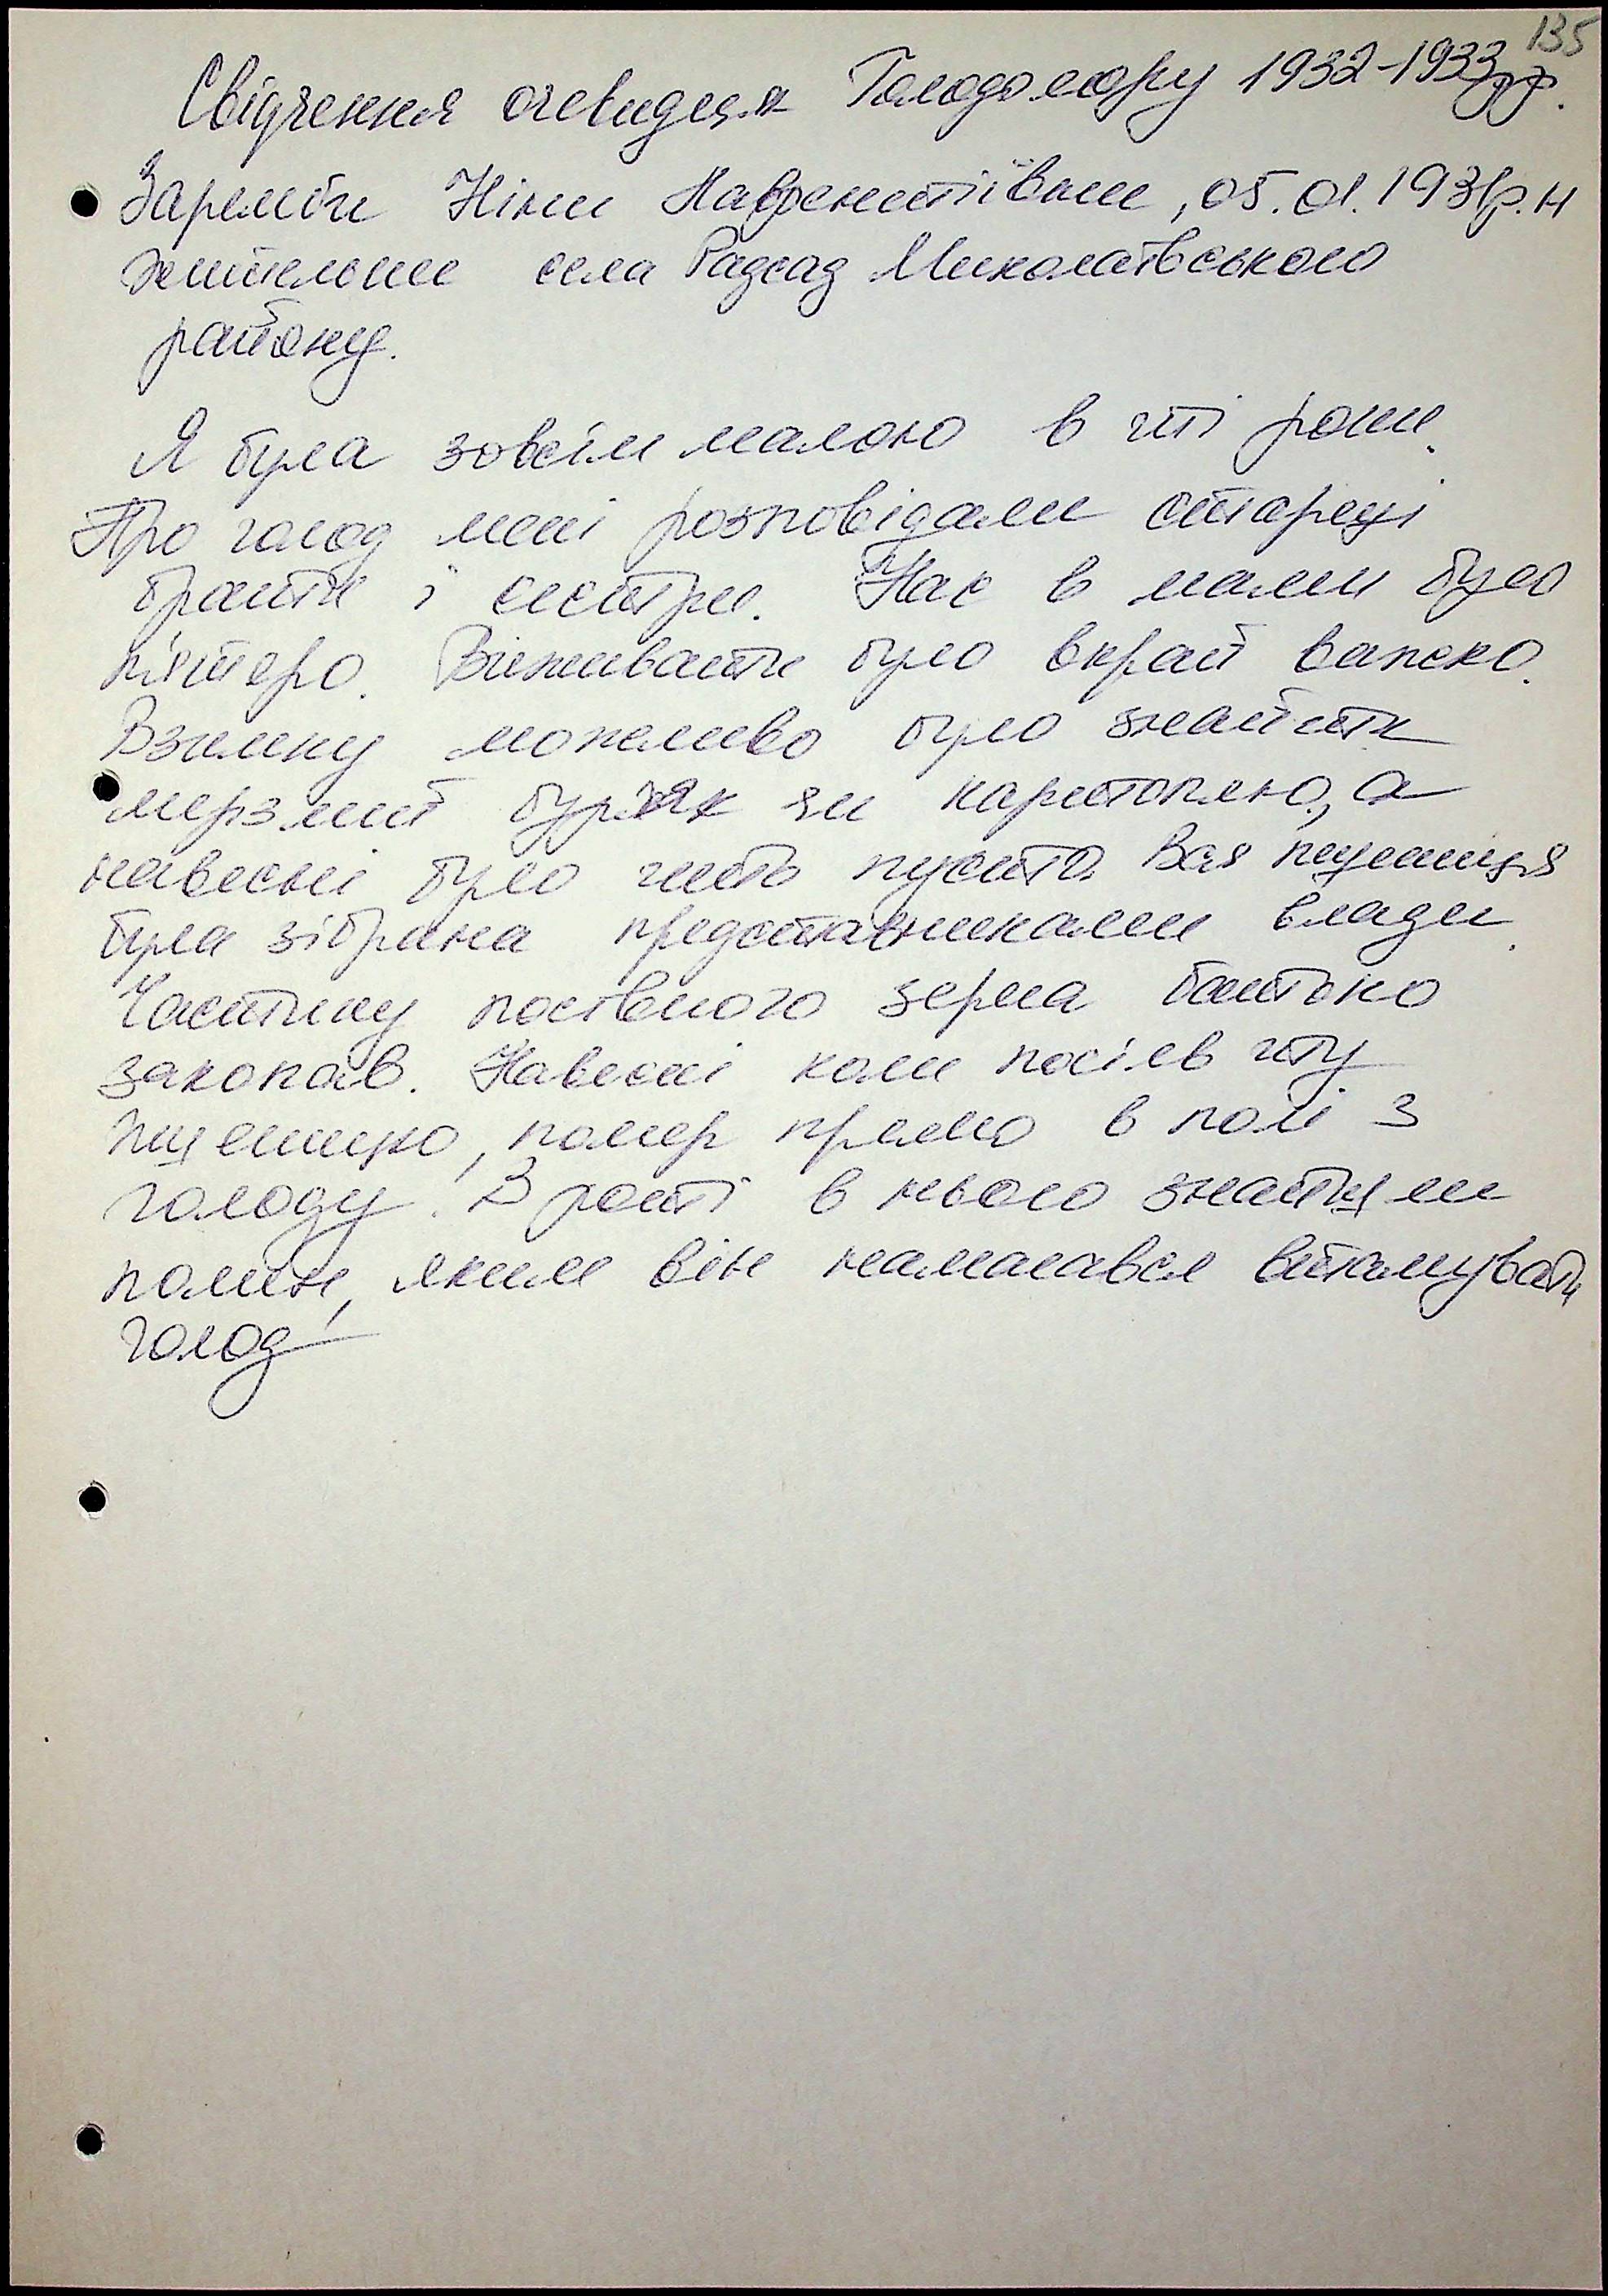 135
Свідчення очевидця Голодомору 1932-1933рр.
Заремби Ніни Лаврентіївни, 05.01.1931р.н
жительки села Радсад Миколаївського
району.
Я була зовсім малою в ті роки.
Про голод мені розповідали старші
брати і сестри. Нас в мами було
п'ятеро. Виживати було вкрай важко.
Взимку можливо було знайти
мерзлий буряк чи картоплю, а
навесні було геть пусто. Вся пшениця
була зібрана представниками влади.
Частину посівного зерна батько
закопав. Навесні коли посіяв цю
пшеницю, помер прямо в полі з
голоду. В роті в нього знайшли
полин, яким він намагався втамувати
голод!